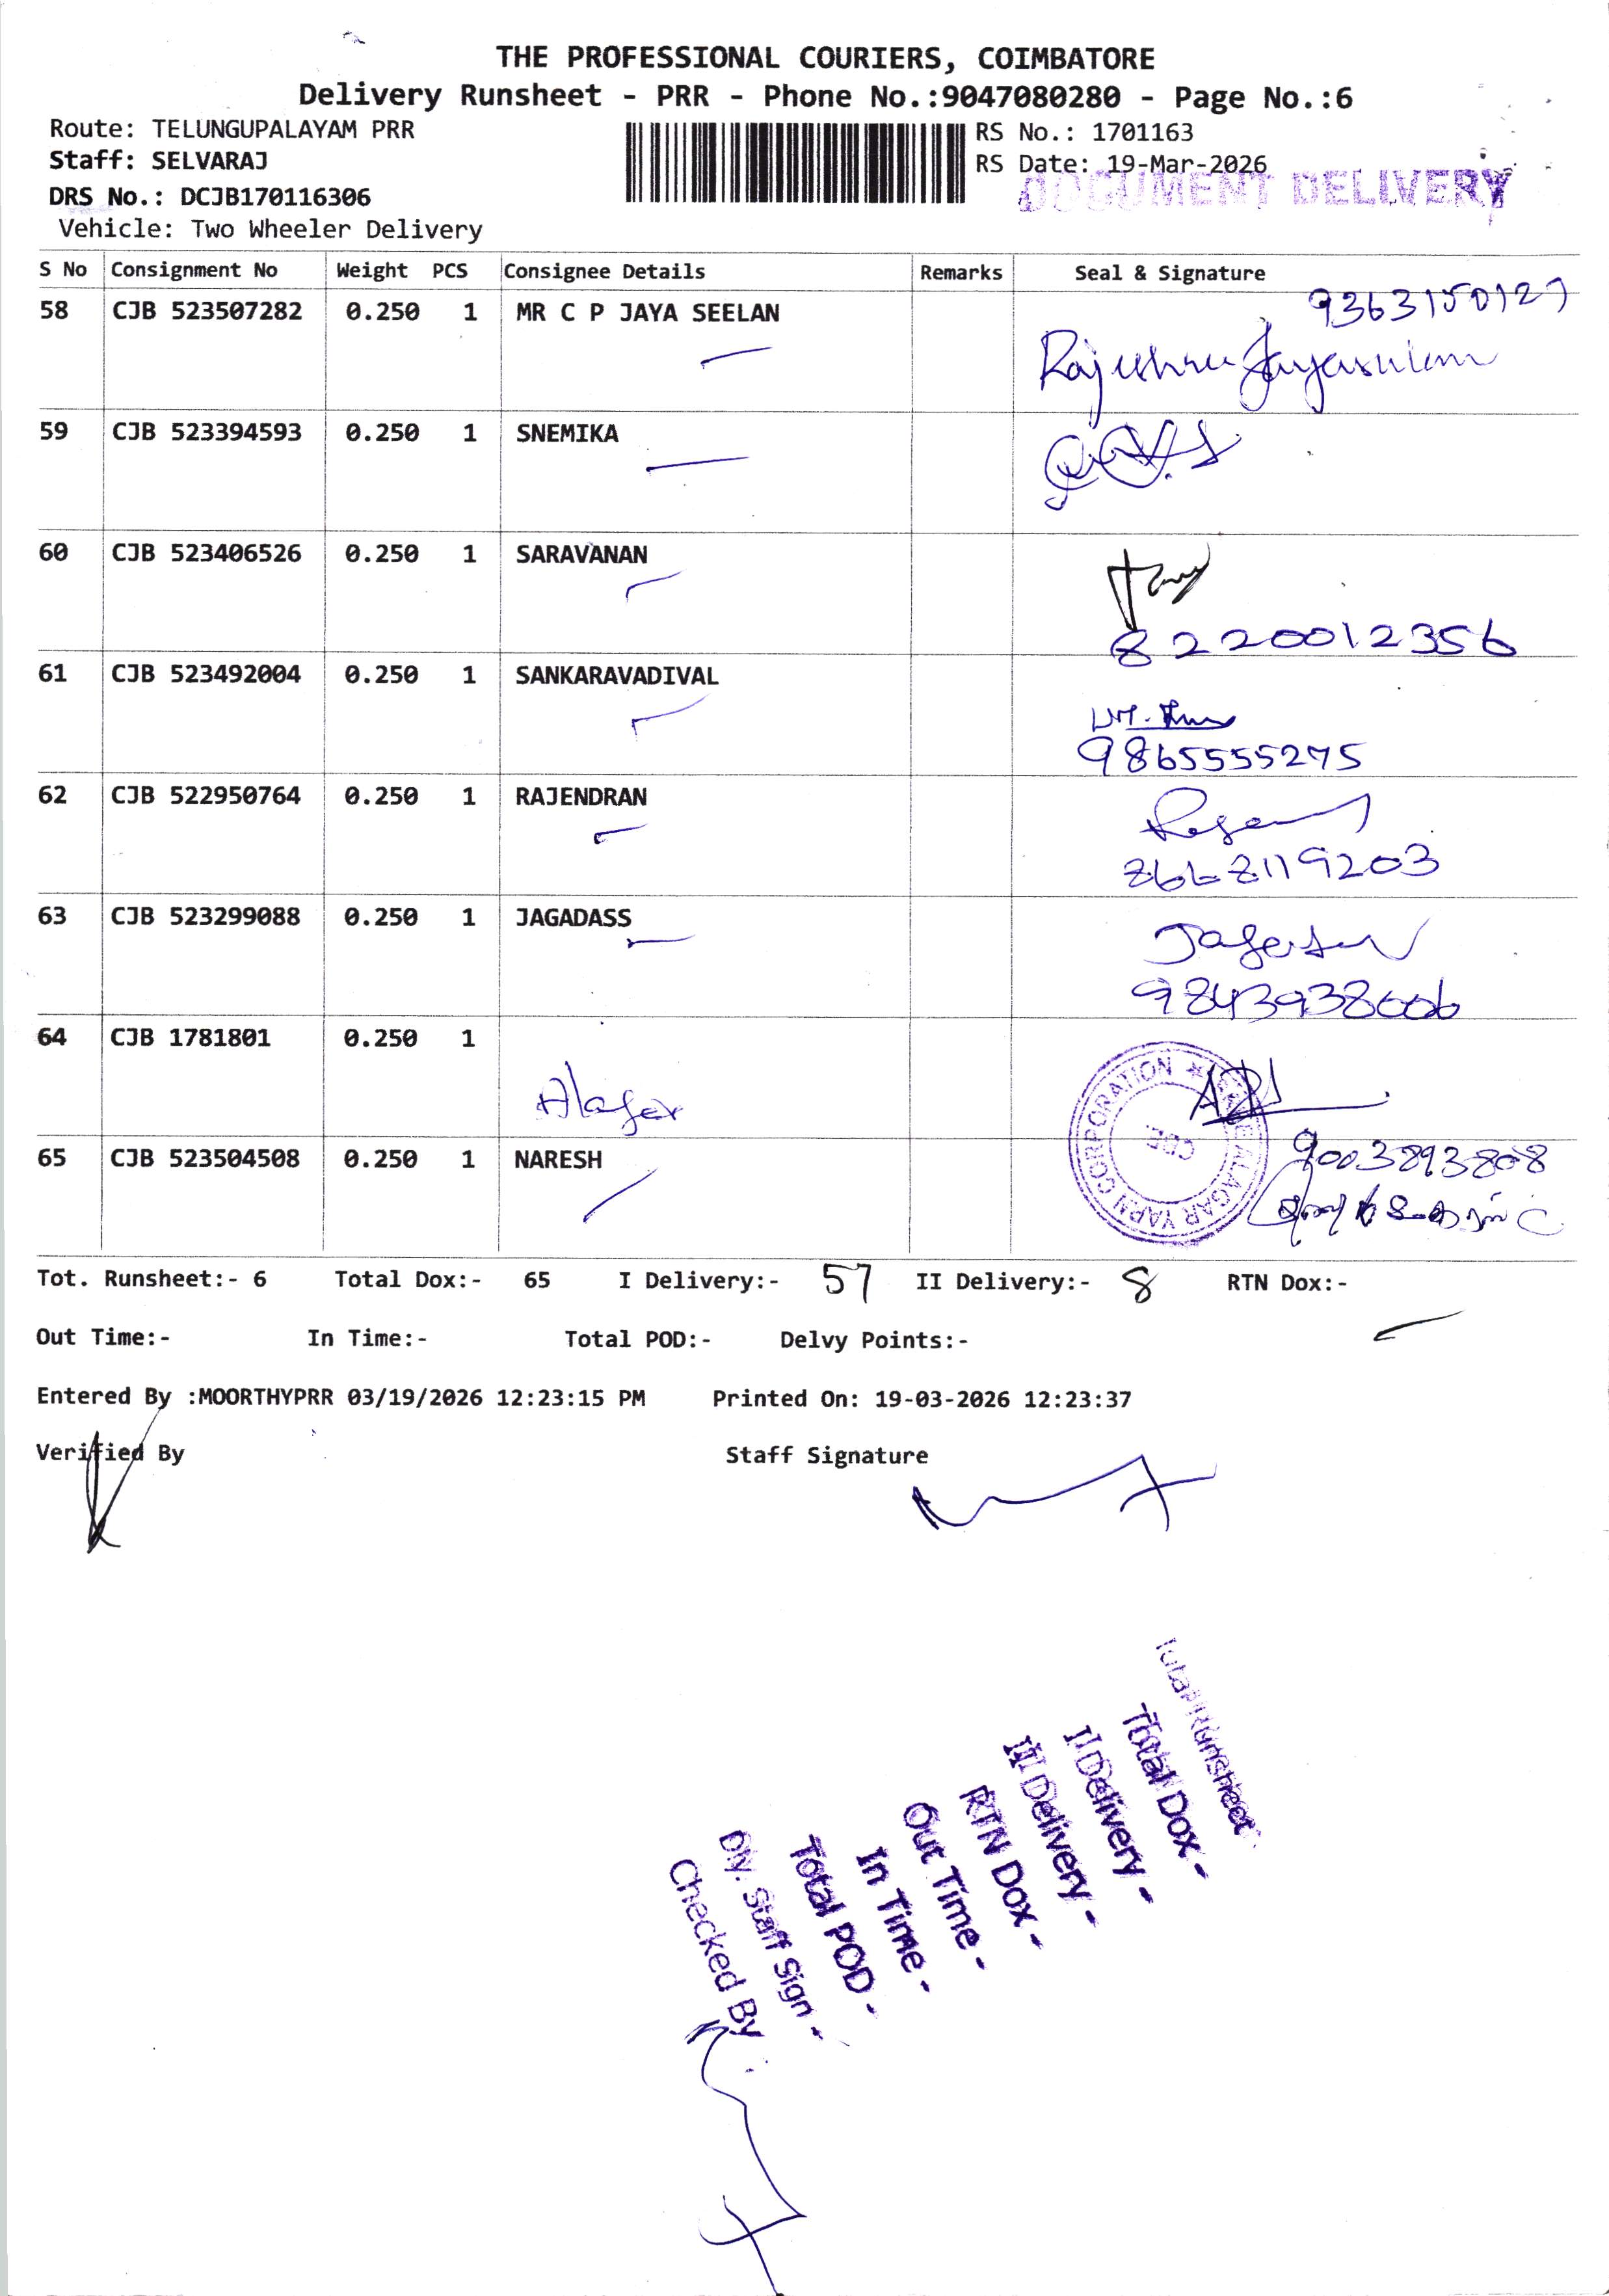 THE PROFESSIONAL COURIERS, COIMBATORE
Delivery Runsheet - PRR - Phone No.:9047080280 - Page No.:6
Route: TELUNGUPALAYAM PRR
RS No.: 1701163
Staff: SELVARAJ
RS Date: 19-Mar-2026
DOCUMENT DELIVERY
DRS No.: DCJB170116306
Vehicle: Two Wheeler Delivery
S No Consignment No Weight PCS Consignee Details Remarks Seal & Signature
9363150127
58 CJB 523507282 0.250 1 MR C P JAYA SEELAN
59 CJB 523394593 0.250 1 SNEMIKA
60 CJB 523406526 0.250 1 SARAVANAN
8220012356
61 CJB 523492004 0.250 1 SANKARAVADIVAL
9865555275
62 CJB 522950764 0.250 1 RAJENDRAN
63 CJB 523299088 0.250 1 JAGADASS
9843938606
64 CJB 1781801 0.250 1
Alager
ALAGAR YARN CORPORATION
CBE
65 CJB 523504508 0.250 1 NARESH
9003893808
Tot. Runsheet:- 6 Total Dox:- 65 I Delivery:- 57 II Delivery:- 8 RTN Dox:-
Out Time:- In Time:- Total POD:- Delvy Points:-
Entered By :MOORTHYPRR 03/19/2026 12:23:15 PM Printed On: 19-03-2026 12:23:37
Verified By Staff Signature
Total Runsheet
Total Dox -
I Delivery -
II Delivery -
RTN Dox -
Out Time -
In Time -
Total POD -
Dly. Staff Sign -
Checked By